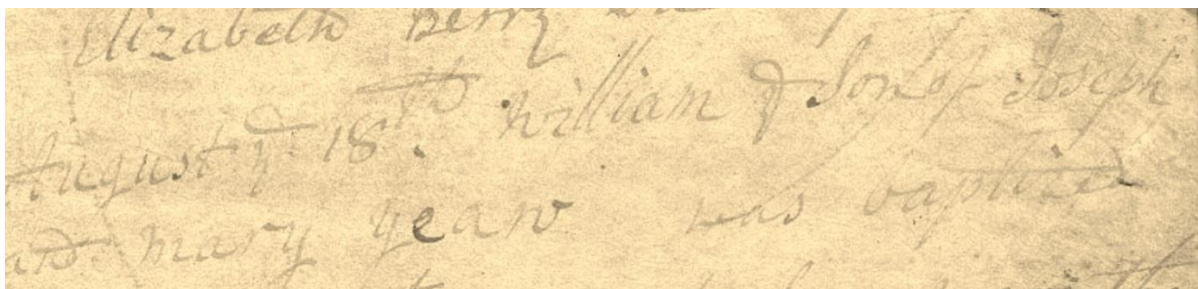 Elizabeth Berry
August ye 18th. William ye Son of Joseph
and mary yearw was baptized